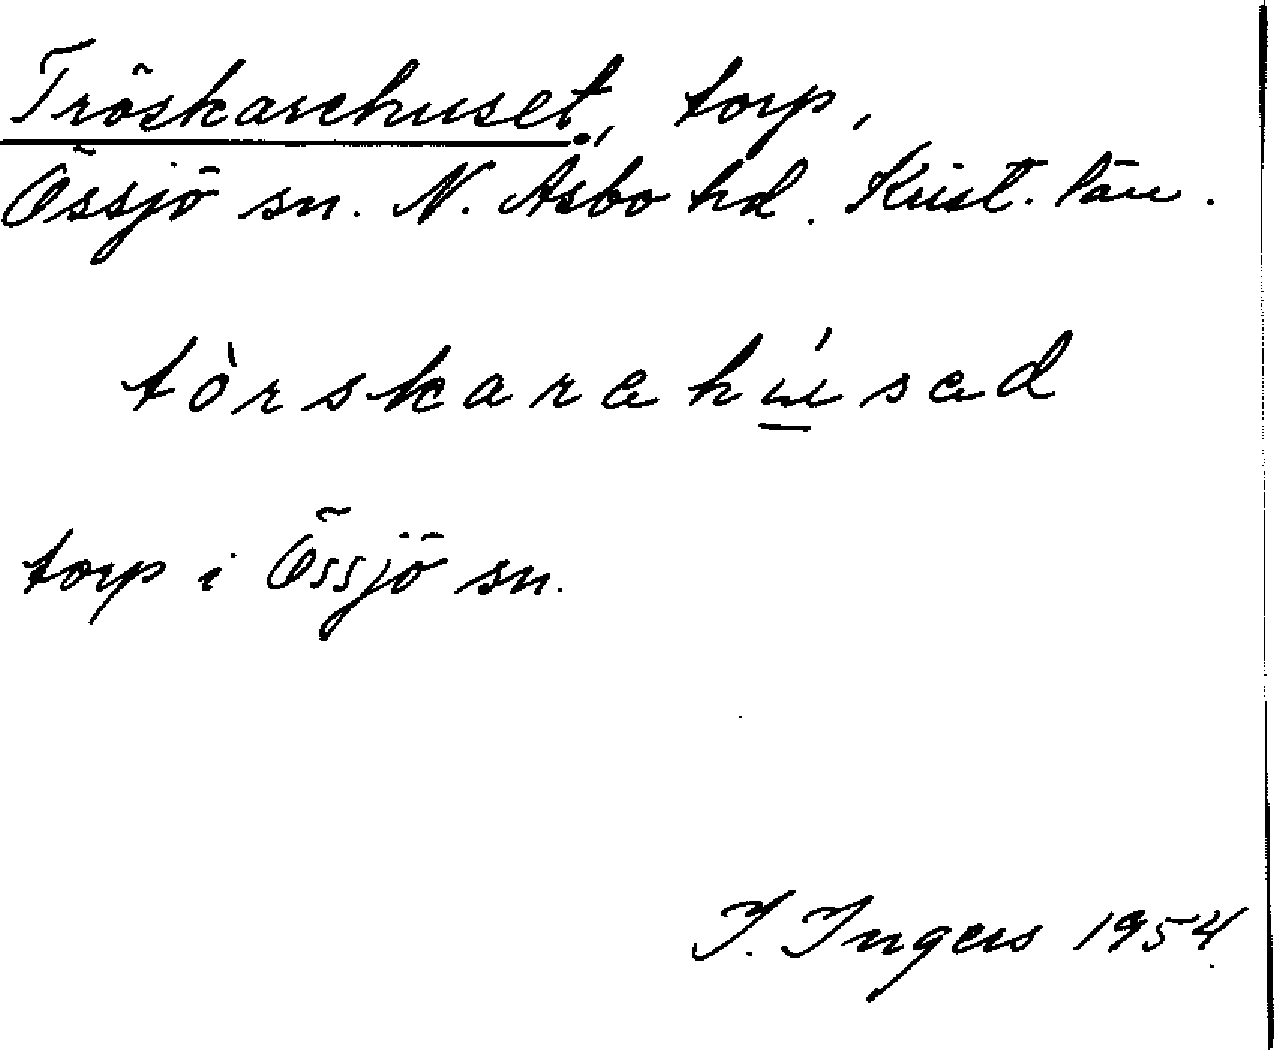 Tröskarehuset, torp,
Össjö sn. N. Åsbo hd. Krist. län.
tòrskarahúsad
torp i Össjö sn.
I. Ingers 1954